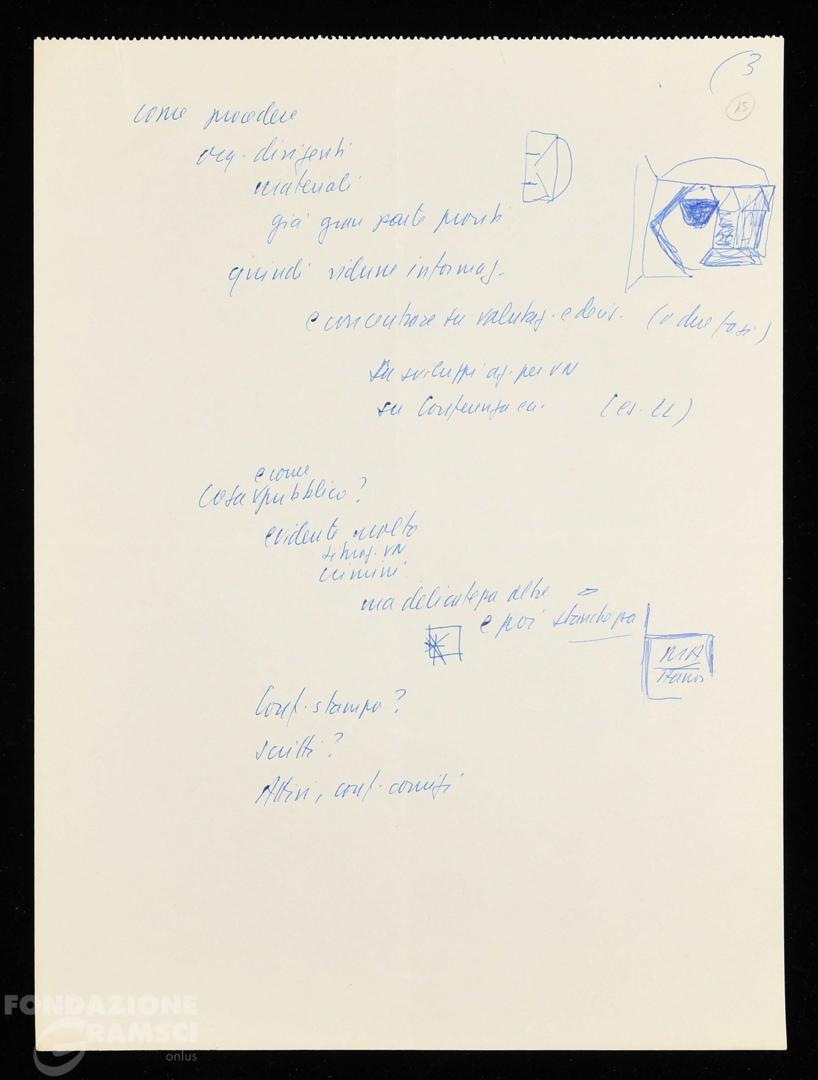 3
15
come procedere
org. dirigenti
materiali
già gran parte pronti
quindi ridurre informaz.
e concentrare su valutaz. e decis. (o due fasi)
su sviluppi az. per VN
su Conferenza
e come
Cosa v pubblico?
evidente molto
VN
crimini
ma delicatezza altre
e poi
Hanoi
Conf. stampa?
scritti?
Attivi, conf. comizi
FONDAZIONE
GRAMSCI
onlus